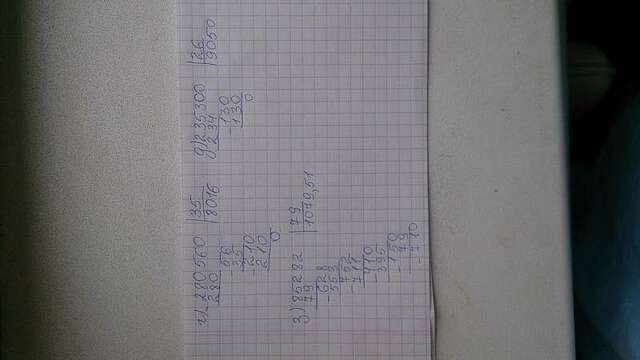 г) 280560 | 35
- 280 | 8016
56
35
- 210
210
0
д) 235300 | 26
234 | 9050
- 130
130
0
з) 85282 | 79
79 | 1079,51
- 628
553
- 752
711
- 410
395
- 150
79
- 710